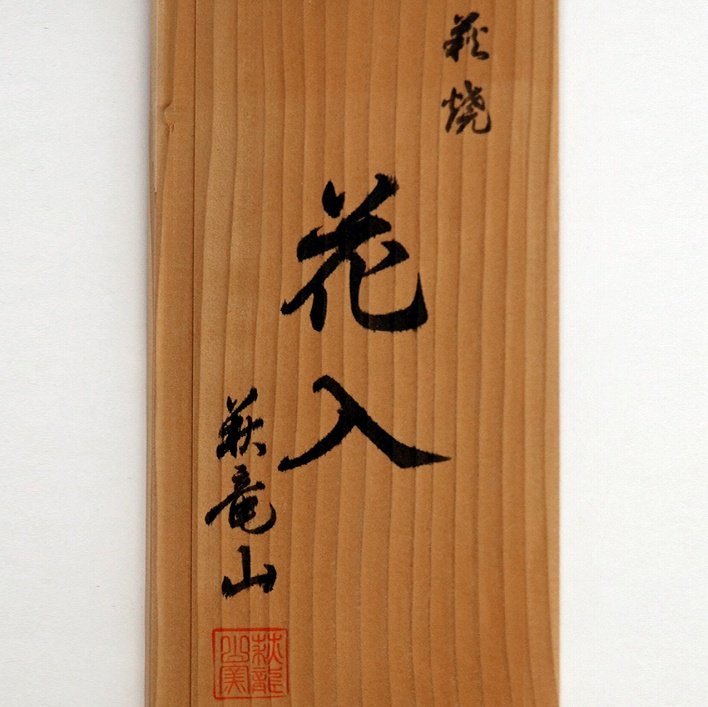 萩焼
花入
萩竜山
萩龍山窯